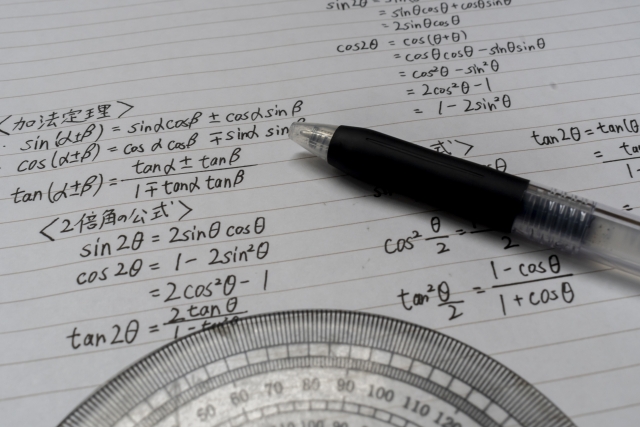 sin2θ =
= sinθcosθ + cosθsinθ
= 2sinθcosθ
cos2θ = cos(θ+θ)
= cosθcosθ - sinθsinθ
= cos²θ - sin²θ
= 2cos²θ - 1
= 1 - 2sin²θ
<加法定理>
sin(α±β) = sinαcosβ ± cosαsinβ
cos(α±β) = cosα cosβ ∓ sinα sin
tan(α±β) = tanα ± tanβ / 1 ∓ tanα tanβ
<2倍角の公式>
sin2θ = 2sinθ cosθ
cos2θ = 1 - 2sin²θ
= 2cos²θ - 1
tan2θ = 2tanθ / 1 -
式>
cos² θ/2 =
tan² θ/2 = 1 - cosθ / 1 + cosθ
tan2θ = tan(θ
=
50 60 70 80 90 100 110 120